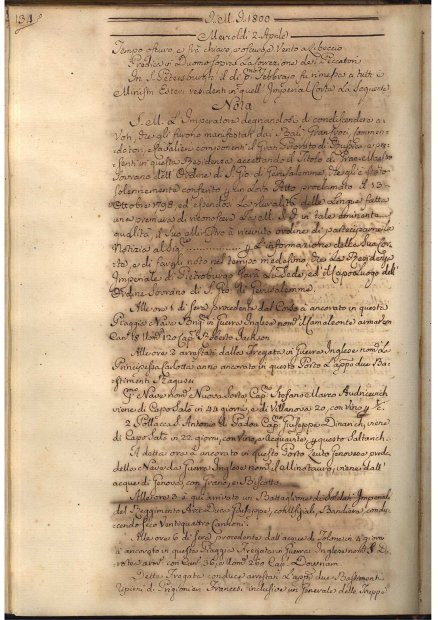 131
I. M. I. 1800
Mercoldì 2. Aprile
Tempo oscuro, e più chiaro, e oscuro, Vento a Libeccio
Predica in Duomo sopra la Correzione dei Peccatori
In S. Petersburgh il dì pmo Febbrajo fù rimessa a tutti i
Ministri Esteri residenti in quell'Imperial Corte la seguente
Nota
S. M. L'Imperatore degnandosi di condiscendere a
Voti, che gli furono manifestati dai Balì, Gran Croci, Commen-
datori, Cavalieri componenti il Gran Priorato di Russia, e pre-
senti in questa Residenza, accettando il Titolo di Gran Maestro
Sovrano dell'Ordine di S. Gio di Gerusalemme, che gli è stato
solennemente conferito con Atto proclamato il
Ottobre 1798, ed essendosi la pluralità delle Lingue fatta
una premura di riconoscere la M. S. in tale eminente
qualità, il Suo Ministro à ricevuto ordine di partecipare la
Notizia al Sigr L'informazione della Sua
e di fargli noto nel tempo medesimo, che la Residenza
Imperiale di Pietroburgo sarà la Sede, ed il Capo luogo dell'
Ordine Sovrano di S. Gio di Gerusalemme.
Alle ore di sera procedente dal Corso à ancorato in questa
Piaggia Nave Briq in Guerra Inglese nomta Il Camaleonte armata in
Cann 18 Uom 120 Capo Roberto Jackson
Alle ore 2 arrestati dalla Fregata in Guerra Inglese nomta la
Principessa Carlotta anno ancorato in questo Porto L'appo due Ba-
stimenti Ragusei
Nave nomta Nuova Sorte Capo Stefano Marco Andrievich
viene di Capo Salò in 44 giorni, e di Villanova 20, con Vino
2. Pollacca S. Antonio di Padoa Capo Giuseppe Dinarich, viene
di Capo Salò in 22 giorni, con Vino, e Acquavite, quest
A detta ora à ancorato in questo Porto Leuto Genovese
della Nave da Guerra Inglese nomta il Minotauro, viene dall'
acque di Genova, con Grano, e Biscotto
Alle ore 3 è quì arrivato un Battaglione di Soldati Imperiali
del Reggimento Arci Duca Giuseppe, con Uffiziali, e Bandiera, condu-
cendo seco Ventiquattro Cannoni.
Alle ore 6 di sera procedente dall'acque di Tolone in 4 giorni
à ancorato in questa Piaggia Fregata in Guerra Inglese
con Can 36, e Uom 260 Capo Downam.
Detta Fregata conduce arrestati due Bastimenti
ripieni di Prigioni Francesi inclusive un Generale delle Truppe